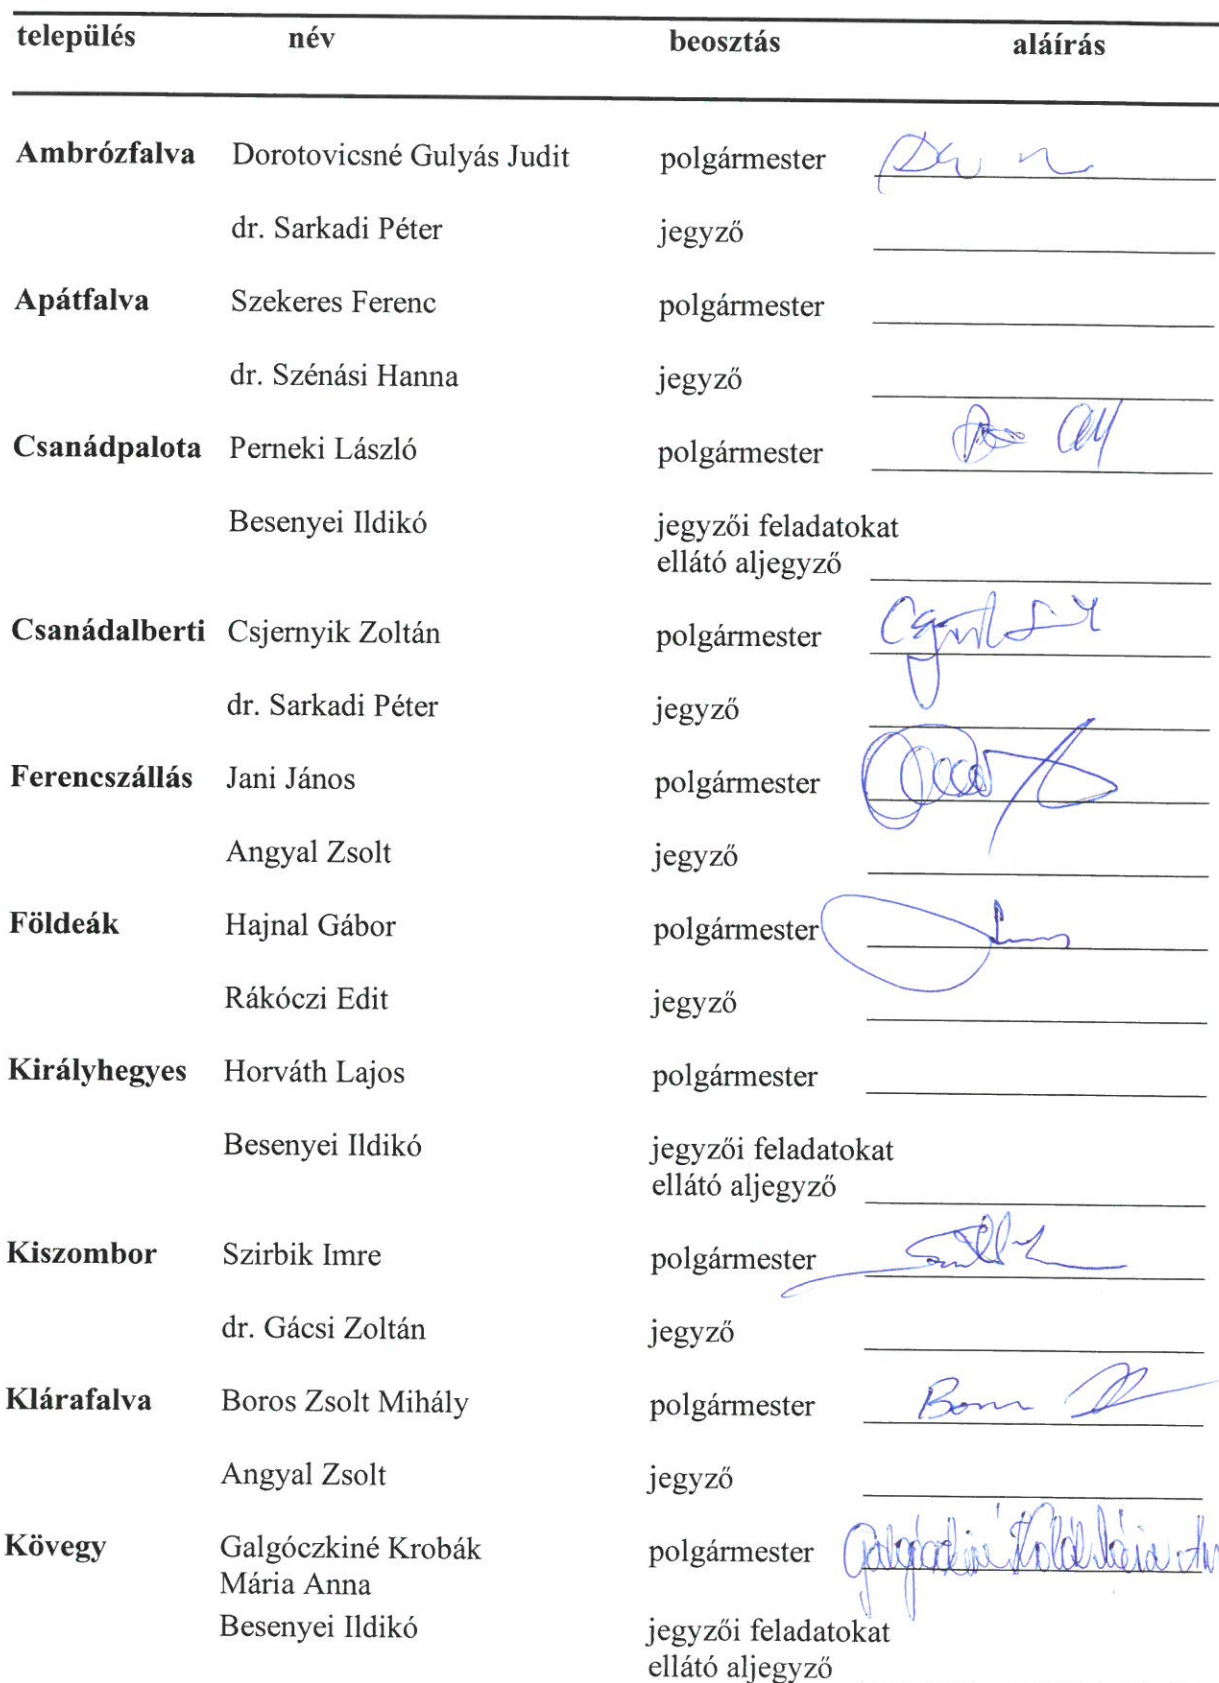 település név beosztás aláírás
Ambrózfalva Dorotovicsné Gulyás Judit polgármester
dr. Sarkadi Péter jegyző
Apátfalva Szekeres Ferenc polgármester
dr. Szénási Hanna jegyző
Csanádpalota Perneki László polgármester
Besenyei Ildikó jegyzői feladatokat
ellátó aljegyző
Csanádalberti Csjernyik Zoltán polgármester
dr. Sarkadi Péter jegyző
Ferencszállás Jani János polgármester
Angyal Zsolt jegyző
Földeák Hajnal Gábor polgármester
Rákóczi Edit jegyző
Királyhegyes Horváth Lajos polgármester
Besenyei Ildikó jegyzői feladatokat
ellátó aljegyző
Kiszombor Szirbik Imre polgármester
dr. Gácsi Zoltán jegyző
Klárafalva Boros Zsolt Mihály polgármester
Angyal Zsolt jegyző
Kövegy Galgóczkiné Krobák polgármester
Mária Anna
Besenyei Ildikó jegyzői feladatokat
ellátó aljegyző